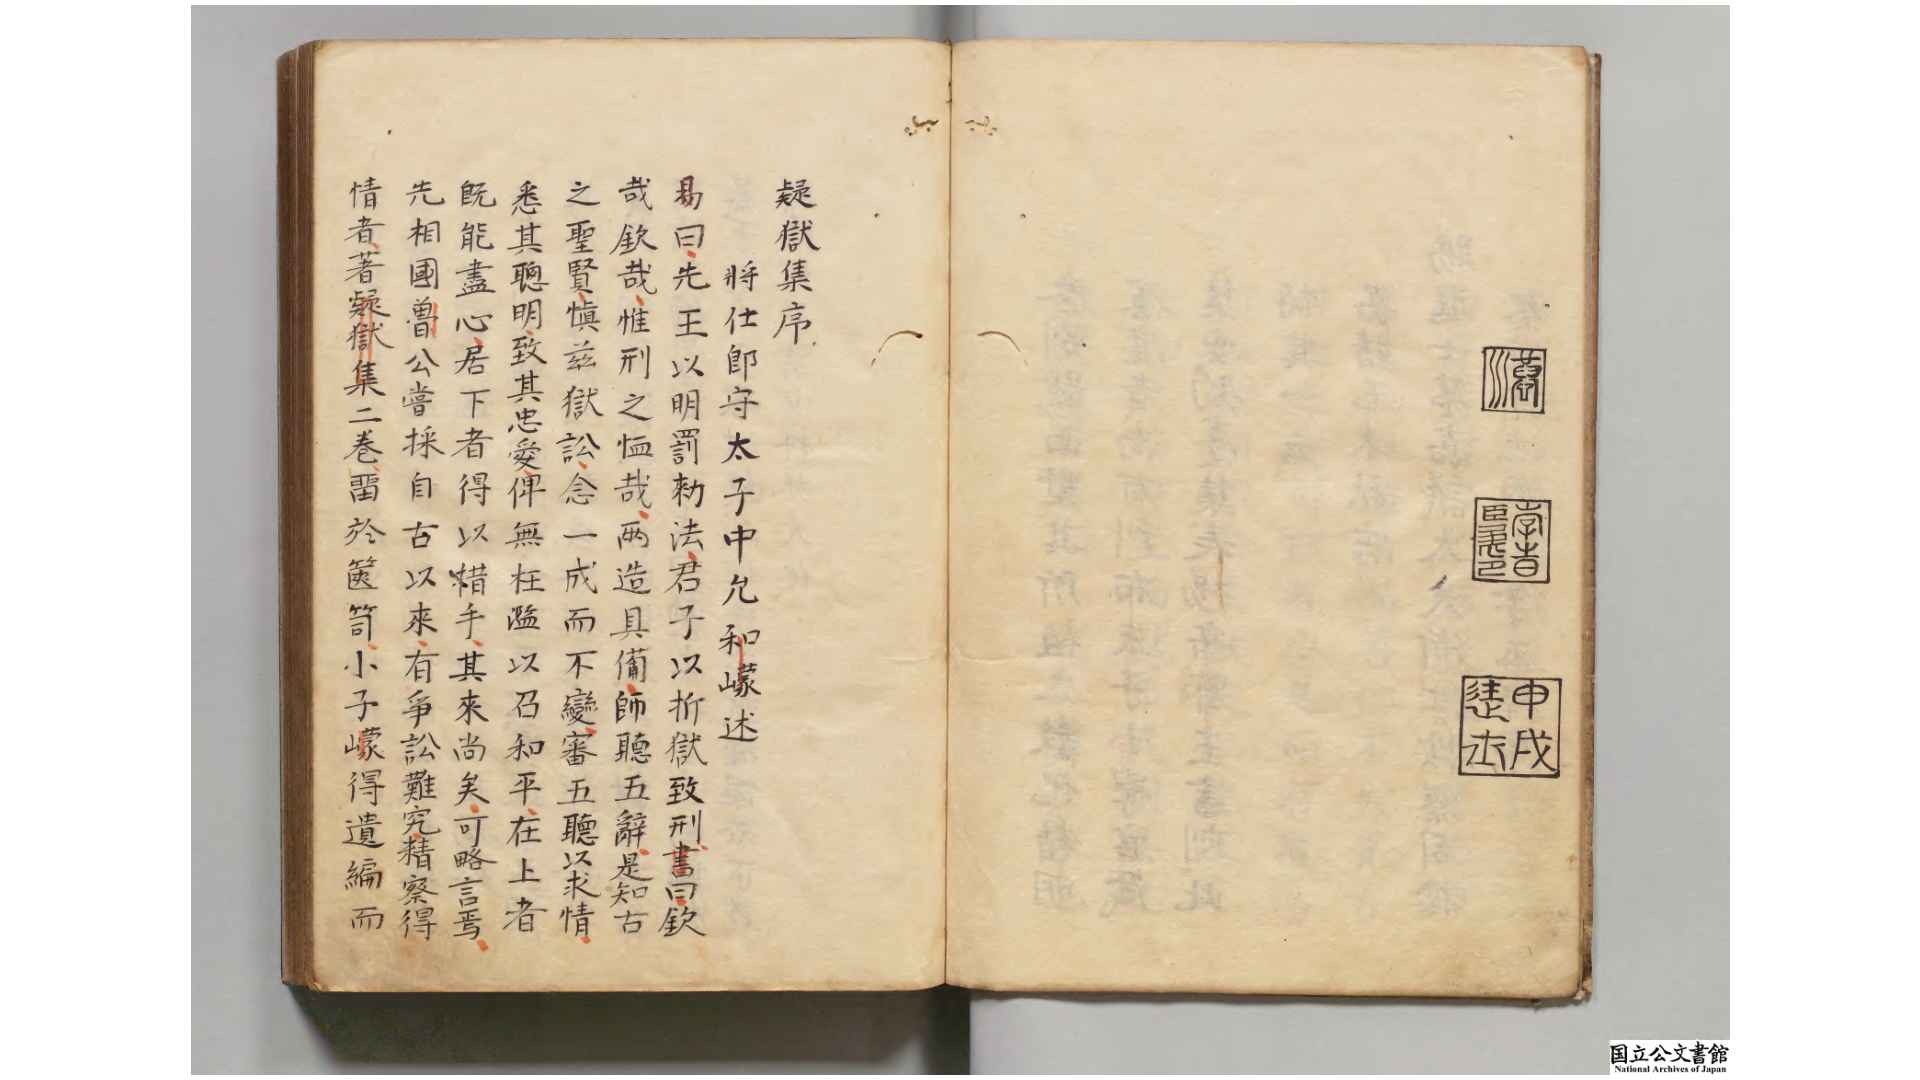 疑獄集序
將仕郎守太子中允和㠓述
易曰先王以明罰勅法君子以折獄致刑書曰欽
哉欽哉惟刑之恤哉兩造具備師聽五辭是知古
之聖賢慎兹獄訟念一成而不變審五聽以求情
悉其聰明致其忠愛俾無枉濫以召和平在上者
既能盡心居下者得以措手其來尚矣可略言焉
先相國魯公嘗採自古以來有爭訟難究精察得
情者著疑獄集二巻畱於篋笥小子㠓得遺編而
甲戌進士
国立公文書館
National Archives of Japan